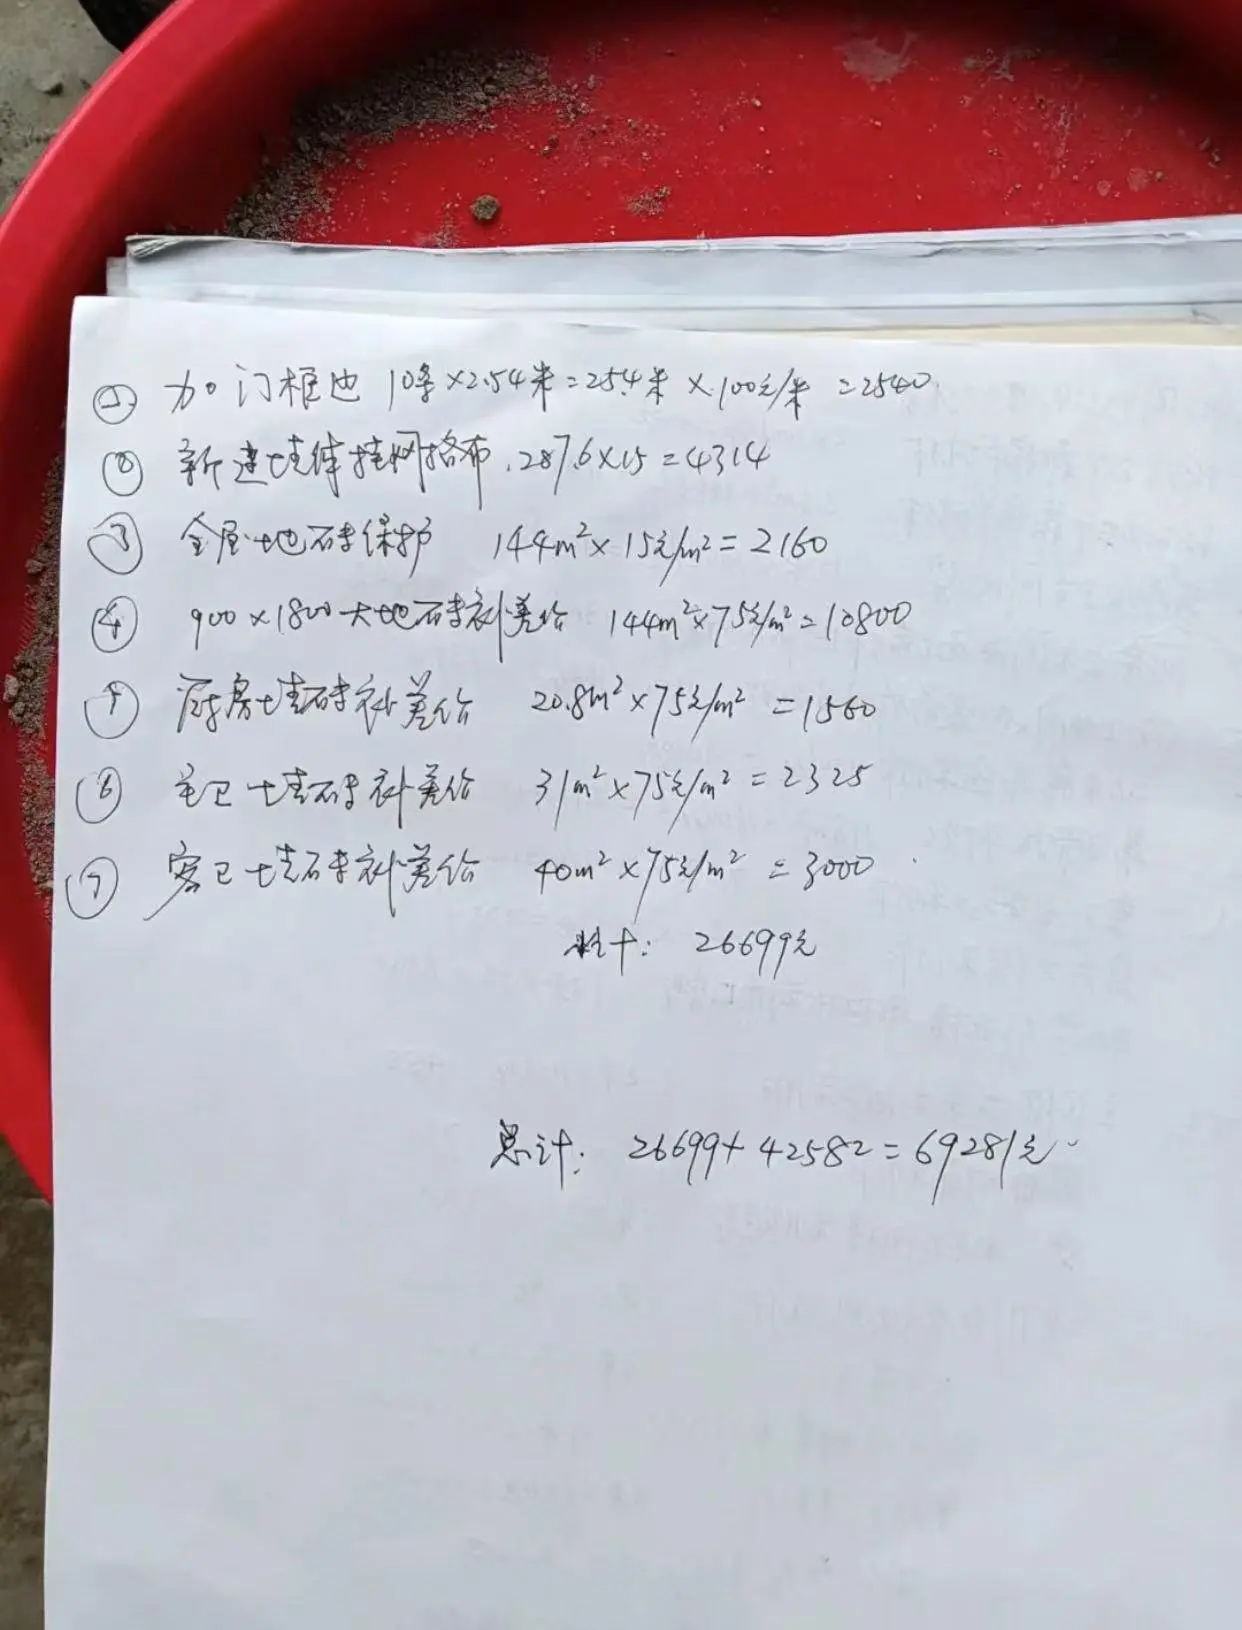 ① 加门框边 10条×2.54米=25.4米×100元/米=2540
② 新建墙体挂网格布.287.6×15=4314
③ 全屋地砖保护 144m²×15元/m²=2160
④ 900×1800大地砖补差价 144m²×75元/m²=10800
⑤ 厨房墙砖补差价 20.8m²×75元/m²=1560
⑥ 主卫墙砖补差价 31m²×75元/m²=2325
⑦ 客卫墙砖补差价 40m²×75元/m²=3000
26699元
总计: 26699+42582=69281元